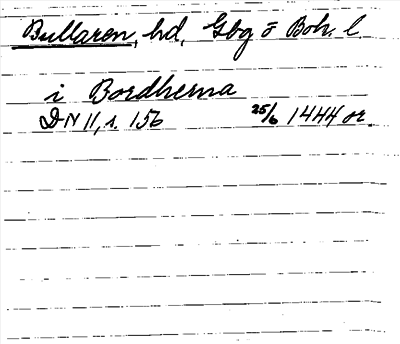 Bullaren, hd, Gbg ō Boh. l.
i Bordhema
DN 11, s. 156 25/6 1444 or.